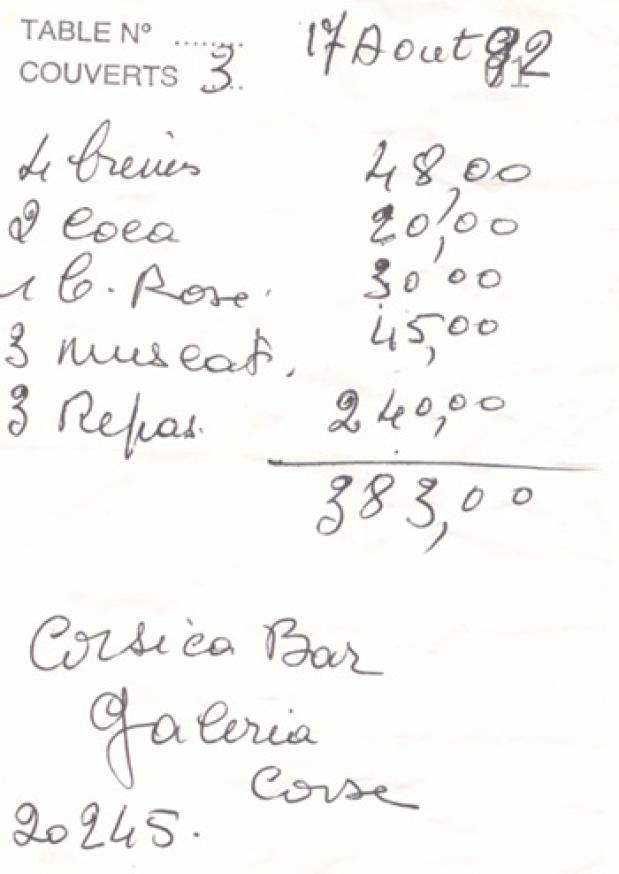 TABLE Nº ........ 17 Aout 92
COUVERTS 3
4 bières 48,00
2 coca 20,00
1 b. Rosé 30,00
3 muscat. 45,00
3 Repas. 240,00
383,00
Corsica Bar
Galeria
Corse
20245.